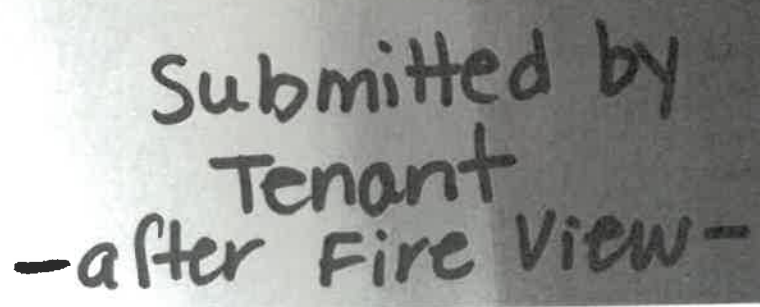 Submitted by
Tenant
-after Fire View-